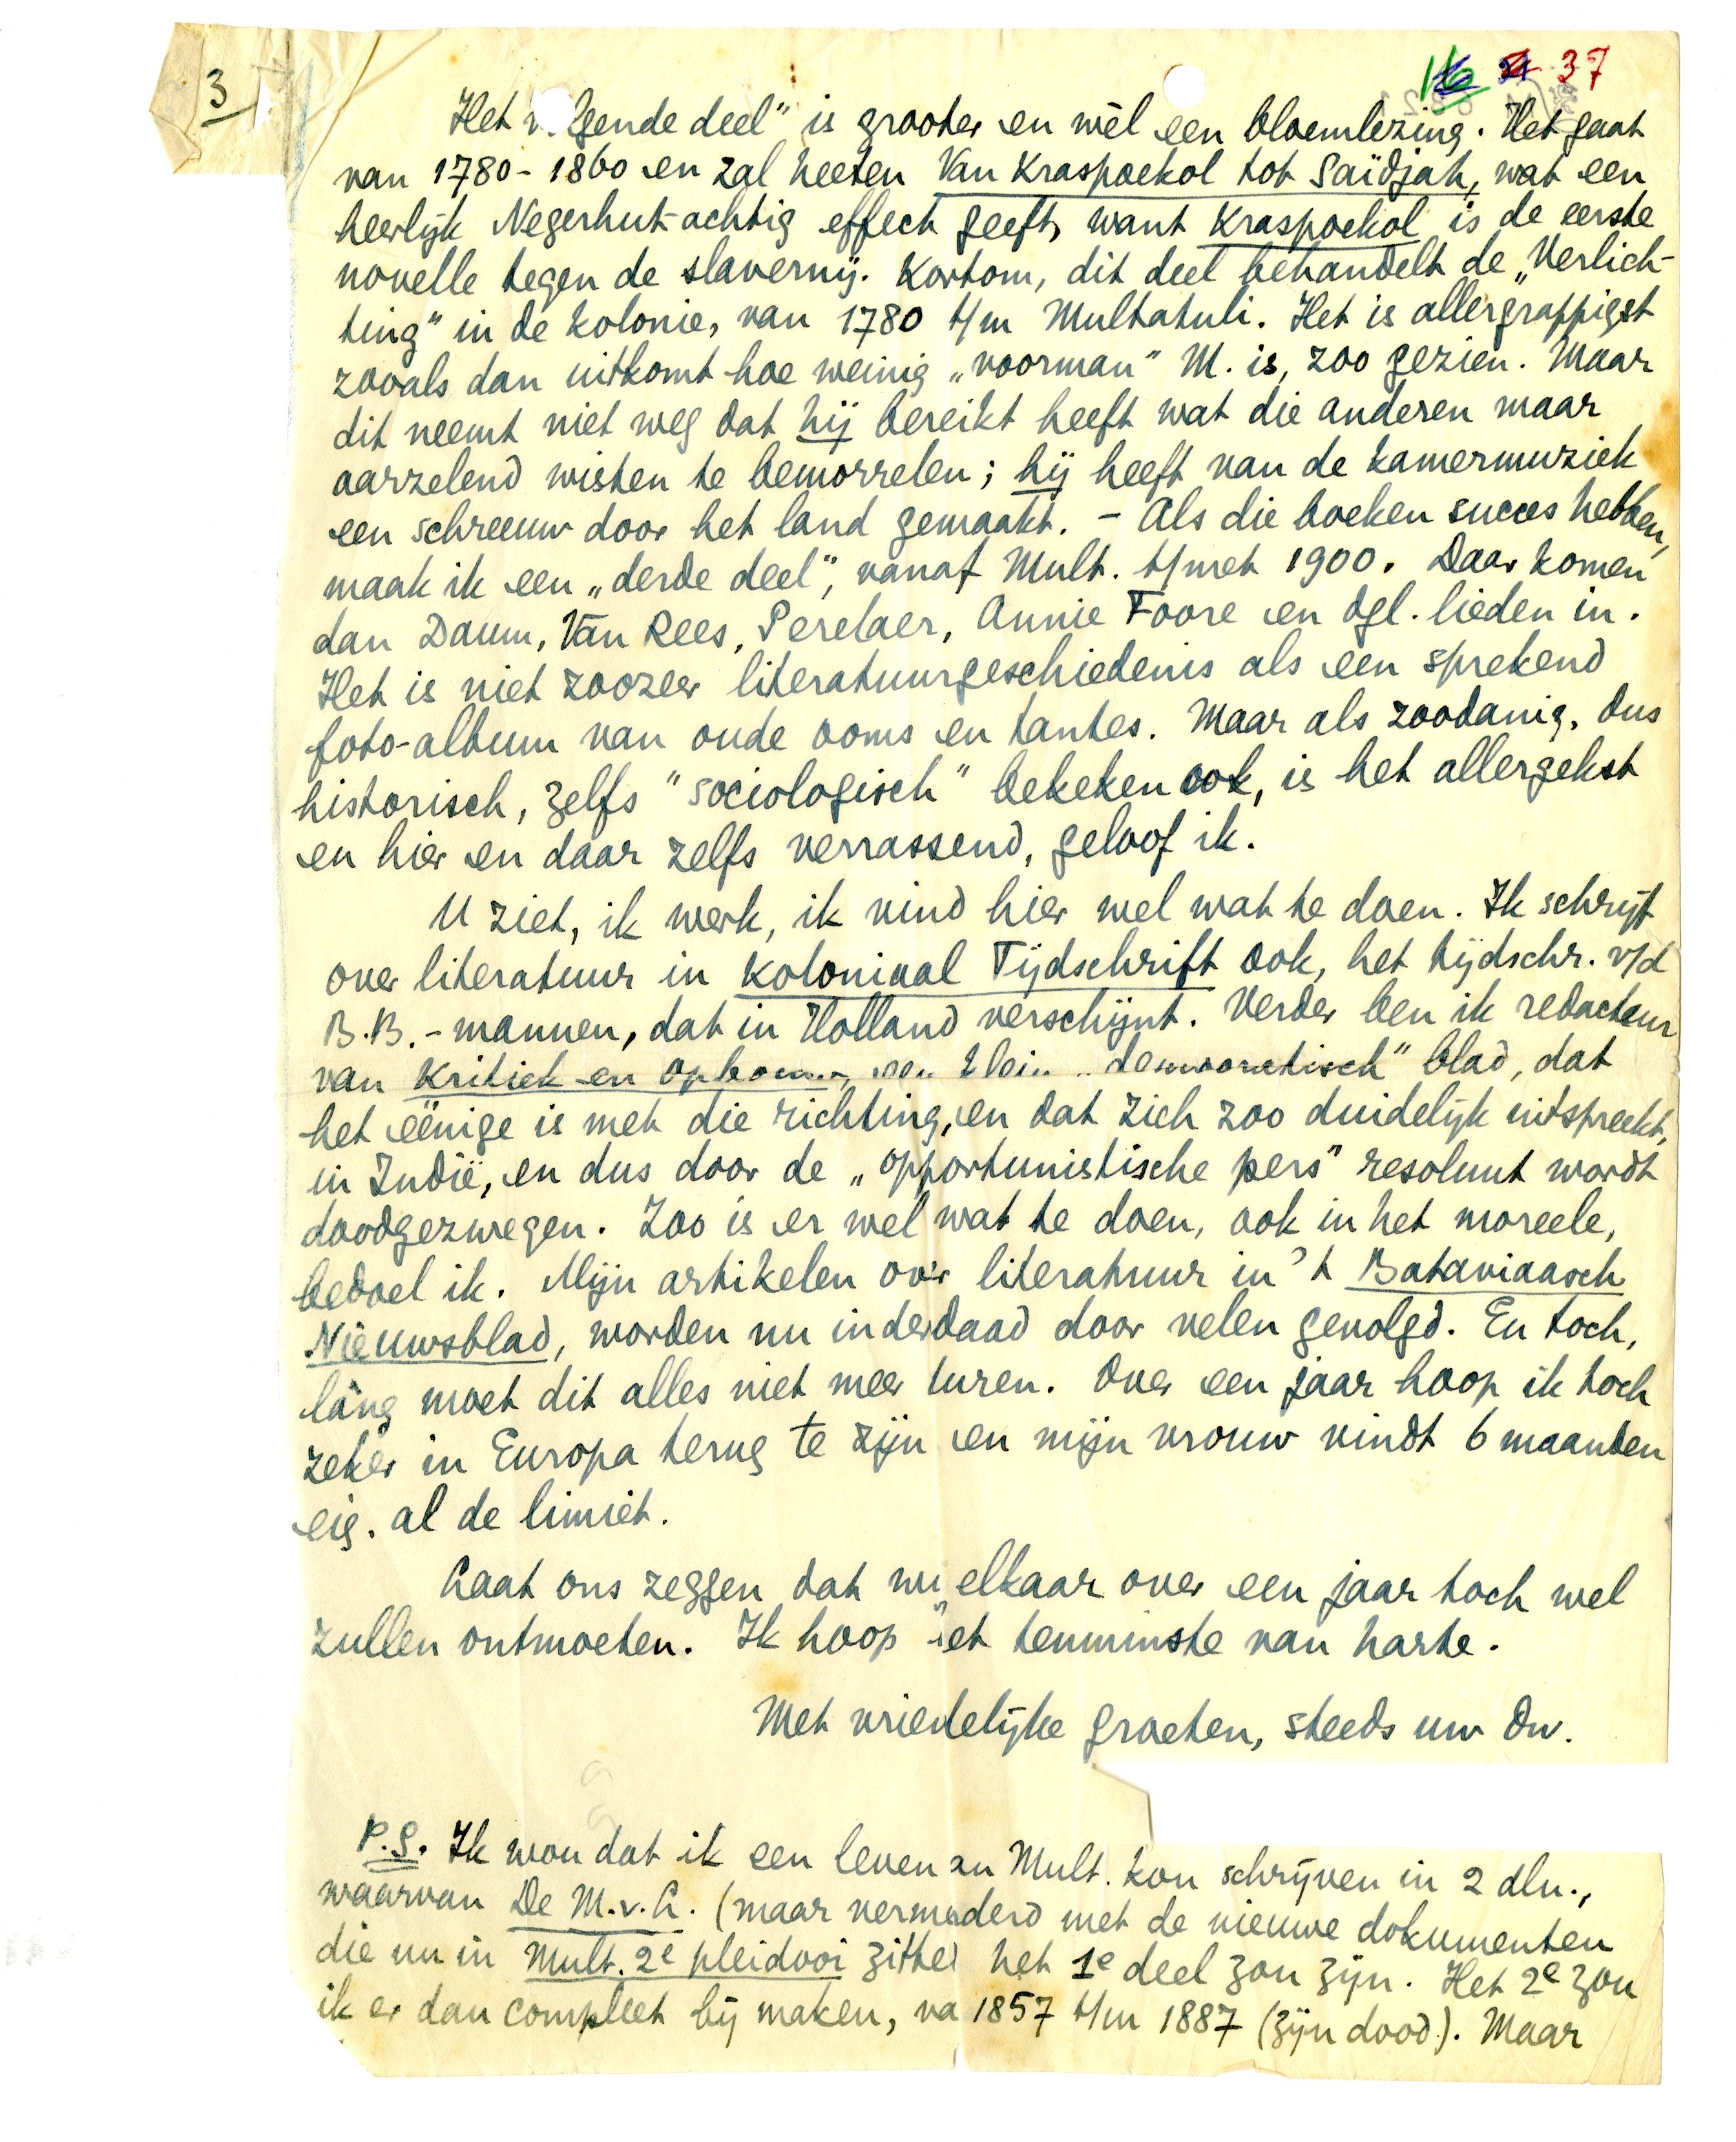 3
16 37
Het volgende deel" is grooter en wèl een bloemlezing. Het gaat
van 1780-1860 en zal heeten Van Kraspoekol tot Saïdjah, wat een
heerlijk Negerhut-achtig effect geeft, want Kraspoekol is de eerste
novelle tegen de slavernij. Kortom, dit deel behandelt de „Verlich-
ting" in de kolonie, van 1780 t/m Multatuli. Het is allergrappigst
zooals dan uitkomt hoe weinig „voorman" M. is, zoo gezien. Maar
dit neemt niet weg dat hij bereikt heeft wat die anderen maar
aarzelend wisten te bemorrelen; hij heeft van de kamermuziek
een schreeuw door het land gemaakt. - Als die boeken succes hebben,
maak ik een „derde deel", vanaf Mult. t/met 1900. Daar komen
dan Daum, Van Rees, Perelaer, Annie Foore en dgl. lieden in.
Het is niet zoozeer literatuurgeschiedenis als een sprekend
foto-album van oude ooms en tantes. Maar als zoodanig, dus
historisch, zelfs "sociologisch" bekeken ook, is het allergekst
en hier en daar zelfs verrassend, geloof ik.
U ziet, ik werk, ik vind hier wel wat te doen. Ik schrijf
over literatuur in Koloniaal Tijdschrift ook, het tijdschr. v/d
B.B.-mannen, dat in Holland verschijnt. Verder ben ik redacteur
van Kritiek en Opbouw, een klein „democratisch" blad, dat
het eënige is met die richting, en dat zich zoo duidelijk uitspreekt,
in Indië, en dus door de „opportunistische pers" resoluut wordt
doodgezwegen. Zoo is er wel wat te doen, ook in het moreele,
bedoel ik. Mijn artikelen over literatuur in 't Bataviaasch
Nieuwsblad, worden nu inderdaad door velen gevolgd. En toch,
láng moet dit alles niet meer duren. Over een jaar hoop ik toch
zeker in Europa terug te zijn en mijn vrouw vindt 6 maanden
eig. al de limiet.
Laat ons zeggen dat wij elkaar over een jaar toch wel
zullen ontmoeten. Ik hoop het tenminste van harte.
Met vriendelijke groeten, steeds uw Dw.
P.S. Ik wou dat ik een leven van Mult. kon schrijven in 2 dln.,
waarvan De M.v.L. (maar vermeerderd met de nieuwe dokumenten
die nu in Mult. 2e pleidooi zitten het 1e deel zou zijn. Het 2e zou
ik er dan compleet bij maken, van 1857 t/m 1887 (zijn dood). Maar